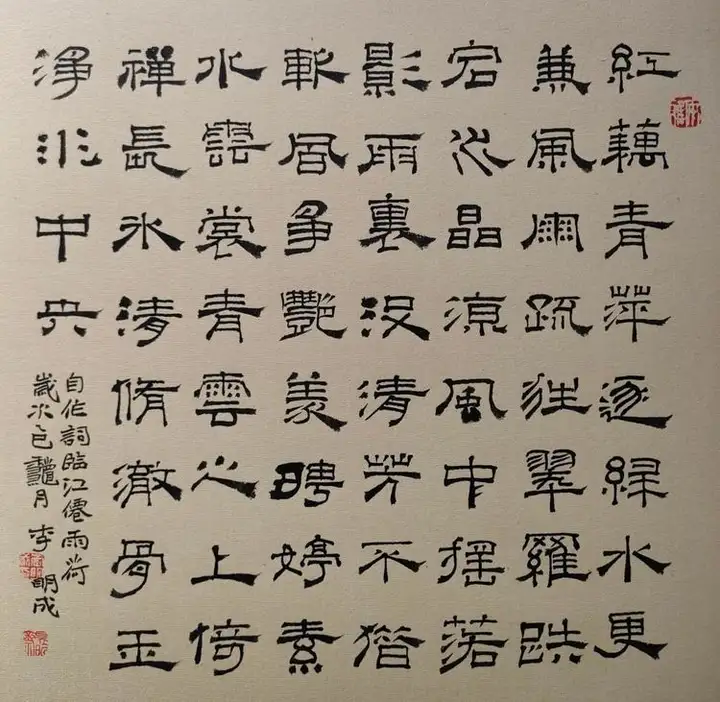 紅藕青萍逐綠水更
兼風雨疏狂翠羅跌
宕沁晶涼風中搖落
影雨裏沒清芳不
斬風爭艷羨娉婷素
水雲裳青雲之上倚
禪長氷清脩澈骨玉
淨水中央
自作詞臨江僊雨荷
歲次乙巳龝月 李明成